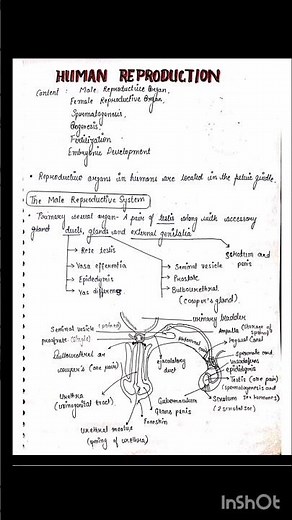 HUMAN REPRODUCTION
Content : Male Reproductive Organ,
Female Reproductive Organ,
Spermatogenesis,
Oogenesis,
Fertilization
Embryonic Development
• Reproductive organs in humans are located in the pelvic girdle.
The Male Reproductive System
• Primary sexual organ - A pair of testis along with accessory
gland ducts, glands and external genitalia
→ Rete testis
→ Vasa efferentia
→ Epididymis
→ Vas differens
→ Seminal vesicle
→ Prostate
→ Bulbourethral
(Cowper's gland).
→ Scrotum and
penis
urinary bladder
Seminal vesicle
prostate (single)
Bulbourethral or
cowper's (one pair)
Ejaculatory
duct
Ampulla
Inguinal Canal
Spermatic cord
Vasdeferens
epididymis
Testis (one pair)
(spermatogenesis and
hormones)
Scrotum
Urethra
(urinogenital tract)
Urethral meatus
(opening of urethra)
Glans penis
Foreskin
InShOt